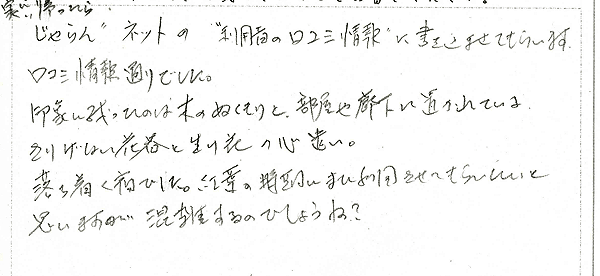 帰ったら
じゃらん"ネットの"利用者の口コミ情報"に書き込ませてもらいます。
口コミ情報通りでした。
印象に残ったのは木のぬくもりと、部屋や廊下に置かれている
さりげない花器と生け花の心遣い。
落ち着く宿でした。紅葉の時期にまた利用させてもらいたいと
思いますが混雑するのでしょうね?